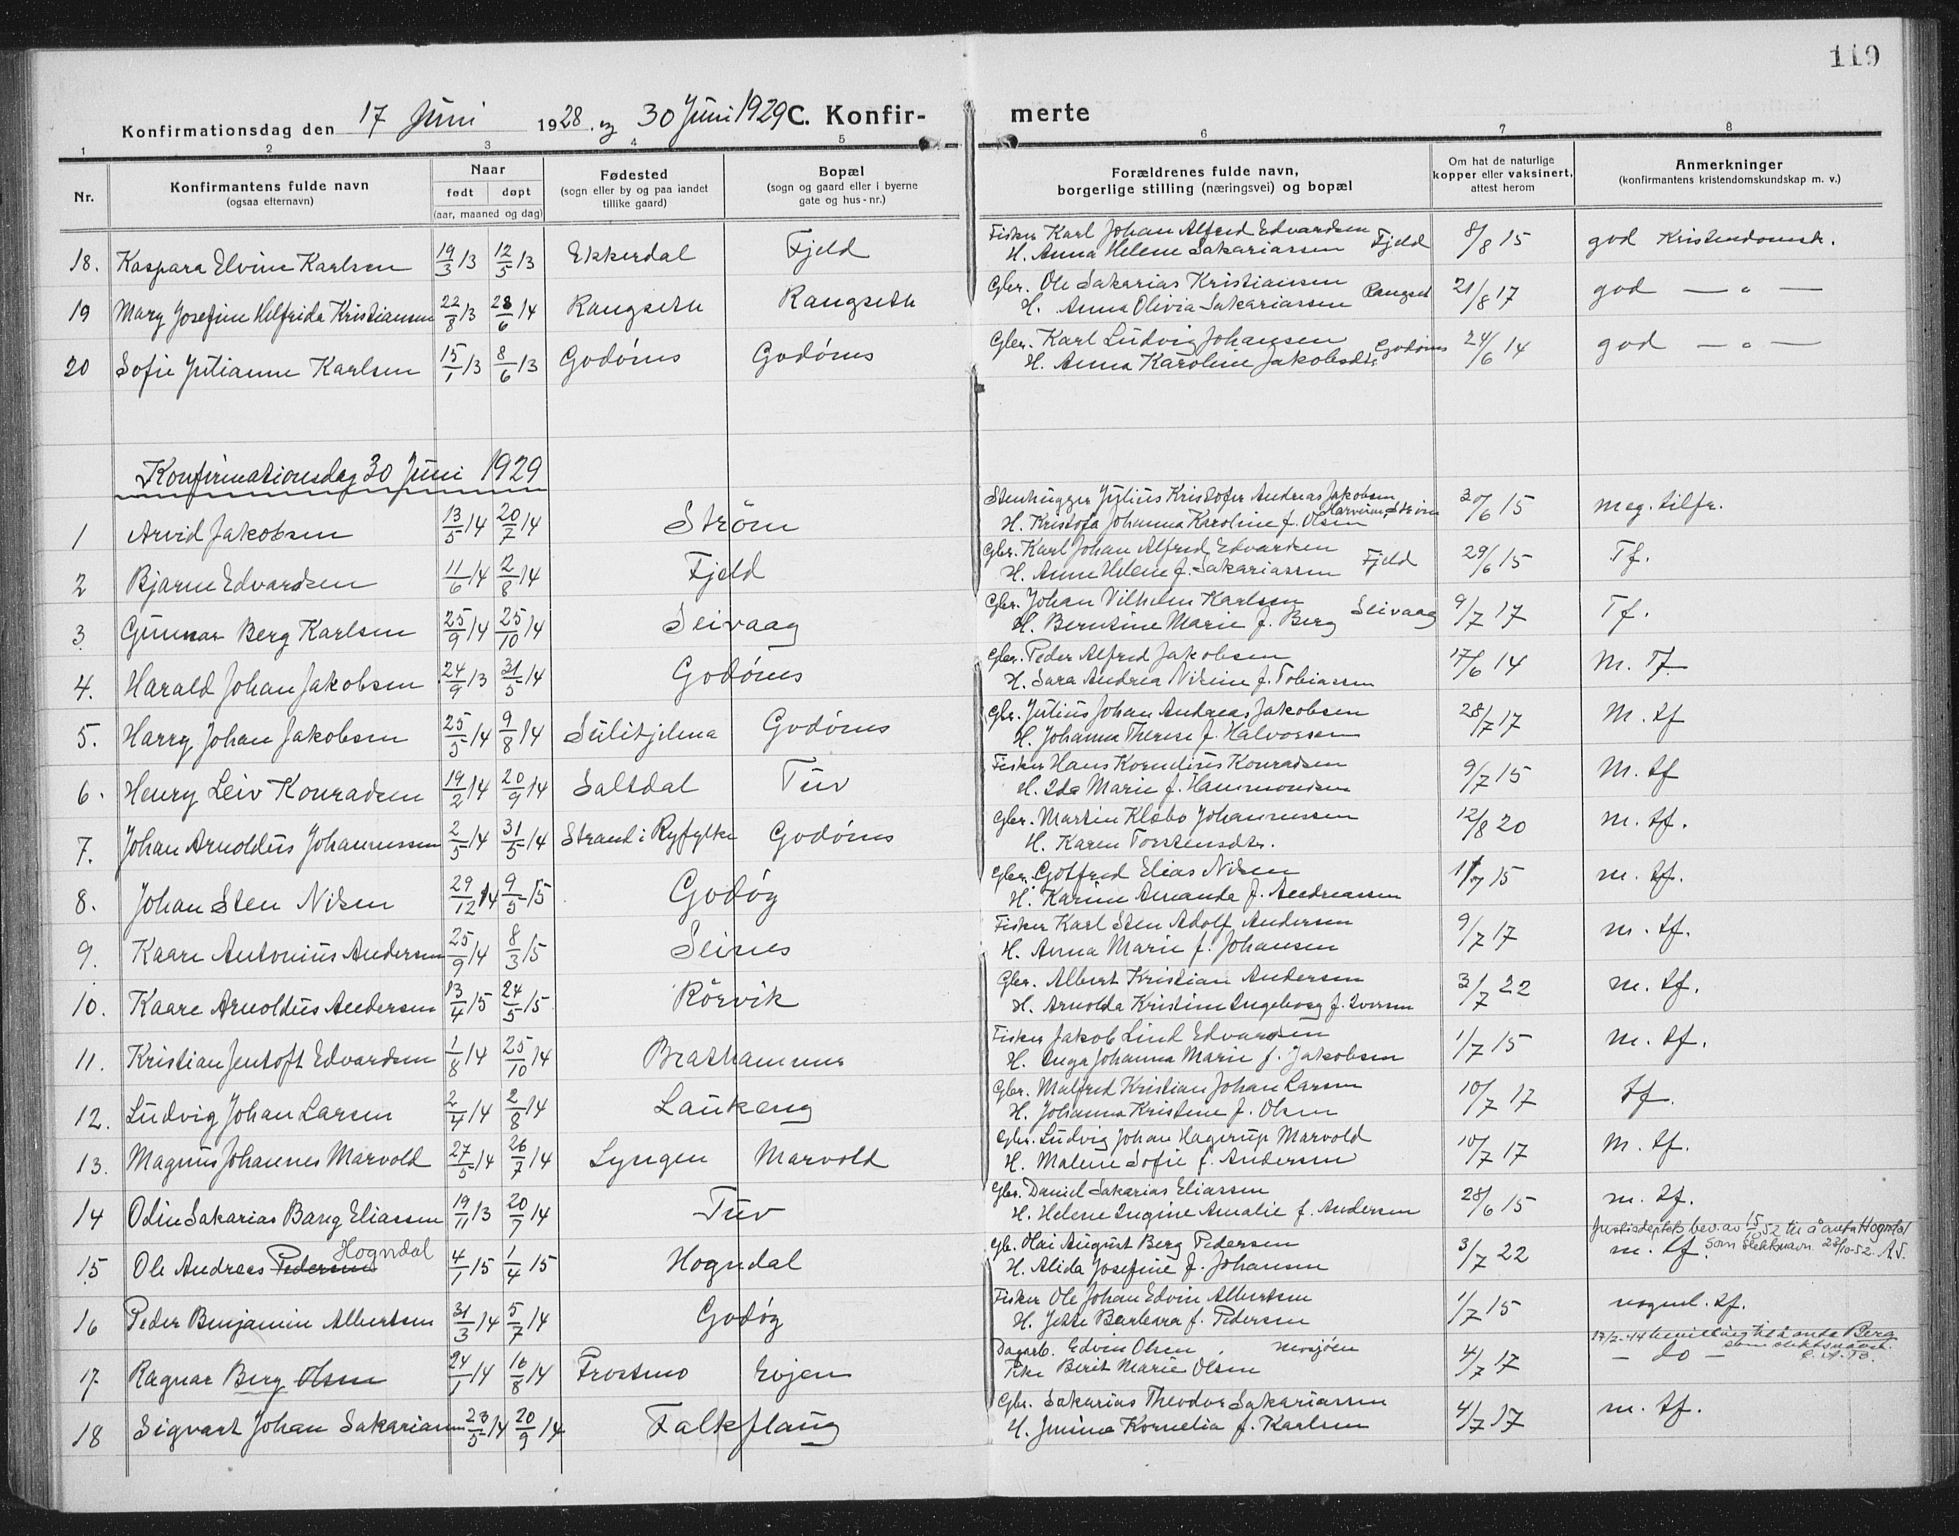 119
Konfirmationsdag den 17 Juni 1928 og 30 Juni 1929 C. Konfirmerte
1 2 3 4 5 6 7 8
Nr.
Konfirmantens fulde navn
(ogsaa efternavn)
Naar
født døpt
(aar, maaned og dag)
Fødested
(sogn eller by og paa landet
tillike gaard)
Bopæl
(sogn og gaard eller i byerne
gate og hus-nr.)
Forældrenes fulde navn,
borgerlige stilling (næringsvei) og bopæl
Om hat de naturlige
kopper eller vaksinert,
attest herom
Anmerkninger
(konfirmantens kristendomskundskap m. v.)
18. Kaspara Elvine Karlsen 19/3 13 12/5 13 Ekkerdal Fjeld Fisker Karl Johan Alfred Edvardsen Fjeld 8/8 15 god Kristendomsk.
H. Anna Helene Sakariassen
19 Mary Josefine Helfrida Kristiansen 22/8 13 28/6 14 Rangseth Rangseth Gbr. Ole Sakarias Kristiansen Rangset 21/8 17 god — " —
H. Anna Olivia Sakariassen
20 Sofie Julianne Karlsen 15/1 13 8/6 13 Godønes Godønes Gbr. Karl Ludvig Johansen Godønes 24/6 14 god — " —
H. Anna Karoline Jakobsdt.
Konfirmationsdag 30 Juni 1929
1 Arvid Jakobsen 13/5 14 20/7 14 Strøm Stenhugger Julius Kristofer Andreas Jakobsen Strøm 30/6 15 meg. tilfr.
H. Kristofa Johanna Karoline f. Olsen
2 Bjarne Edvardsen 11/6 14 2/8 14 Fjeld Gbr. Karl Johan Alfred Edvardsen Fjeld 29/6 15 Tf.
H. Anne Helene f. Sakariassen
3. Gunnar Berg Karlsen 25/9 14 25/10 14 Seivaag Gbr. Johan Vilhelm Karlsen Seivaag 9/7 17 Tf.
H. Berntine Marie f. Berg
4. Harald Johan Jakobsen 24/9 13 31/5 14 Godønes Gbr. Peder Alfred Jakobsen 17/6 14 M. Tf.
H. Sara Andrea Nisine f. Tobiassen
5. Harry Johan Jakobsen 25/5 14 9/8 14 Sulitjelma Godønes Gbr. Julius Johan Andreas Jakobsen 28/7 17 M. tf
H. Johanna Therese f. Halvorsen
6. Henry Leiv Konradsen 19/2 14 20/9 14 Saltdal Tuv Fisker Hans Kornelius Konradsen 9/7 15 M. tf
H. Ida Marie f. Hammondsen
7. Johan Arnoldus Johannessen 2/5 14 31/5 14 Strand i Ryfylke Godønes Gbr. Martin Klæbo Johannessen 12/8 20 m. tf.
H. Karen Torstensdtr.
8. Johan Sten Nilsen 29/12 14 9/5 15 Godøy Gbr. Gotfred Elias Nilsen 1/7 15 m. tf.
H. Karine Amanda f. Andreassen
9. Kaare Antonius Andersen 25/9 14 8/3 15 Seines Fisker Karl Sten Adolf Andersen 9/7 17 m. tf.
H. Anna Marie f. Johansen
10. Kaare Arnoldus Andersen 13/4 15 24/5 15 Rörvik Gbr. Albert Kristian Andersen 3/7 22 m. tf.
H. Arnolda Kristine Ingeborg f. Iversen
11. Kristian Jentoft Edvardsen 1/8 14 25/10 14 Brathammer Fisker Jakob Lind Edvardsen 1/7 15 m. tf.
H. Inga Johanna Marie f. Jakobsen
12. Ludvig Johan Larsen 2/4 14 2/8 14 Laukeng Gbr. Malfred Kristian Johan Larsen 10/7 17 tf.
H. Johanna Kristine f. Olsen
13. Magnus Johannes Marvold 27/5 14 26/7 14 Lyngen Marvold Gbr. Ludvig Johan Hagerup Marvold 10/7 17 M. tf.
H. Malene Sofie f. Andersen
14 Odin Sakarias Bang Eliassen 19/11 13 20/7 14 Tuv Gbr. Daniel Sakarias Eliassen 28/6 15 m. tf.
H. Helene Ingine Amalie f. Andersen
15 Ole Andreas Pedersen Hogndal 4/1 15 1/4 15 Hogndal Gb. Hai August Berg Pedersen 3/7 22 m. tf.
H. Alida Josefine f. Johansen
Justisdeptets bev. av 15/10 52 til å anta Hogndal
som slektsnavn. 22/10-52. AS.
16 Peder Benjamin Albertsen 31/3 14 5/7 14 Godøy Fisker Ole Johan Edvin Albertsen 1/7 15 nogenl. tf.
H. Jette Barbara f. Pedersen
17 Ragnar Berg Olsen 24/1 14 16/8 14 Frostmo Evjen Dagarb. Edvin Olsen, Mosjøen 4/7 17 — do —
Pike Berit Marie Olsen
17/2-44 bevilling til å anta Berg
som slektsnavn.
18 Sigvart Johan Sakariassen 23/5 14 20/9 14 Falkflaug Gbr. Sakarias Theodor Sakariassen 4/7 17 m. tf.
H. Jensine Kornelia f. Karlsen